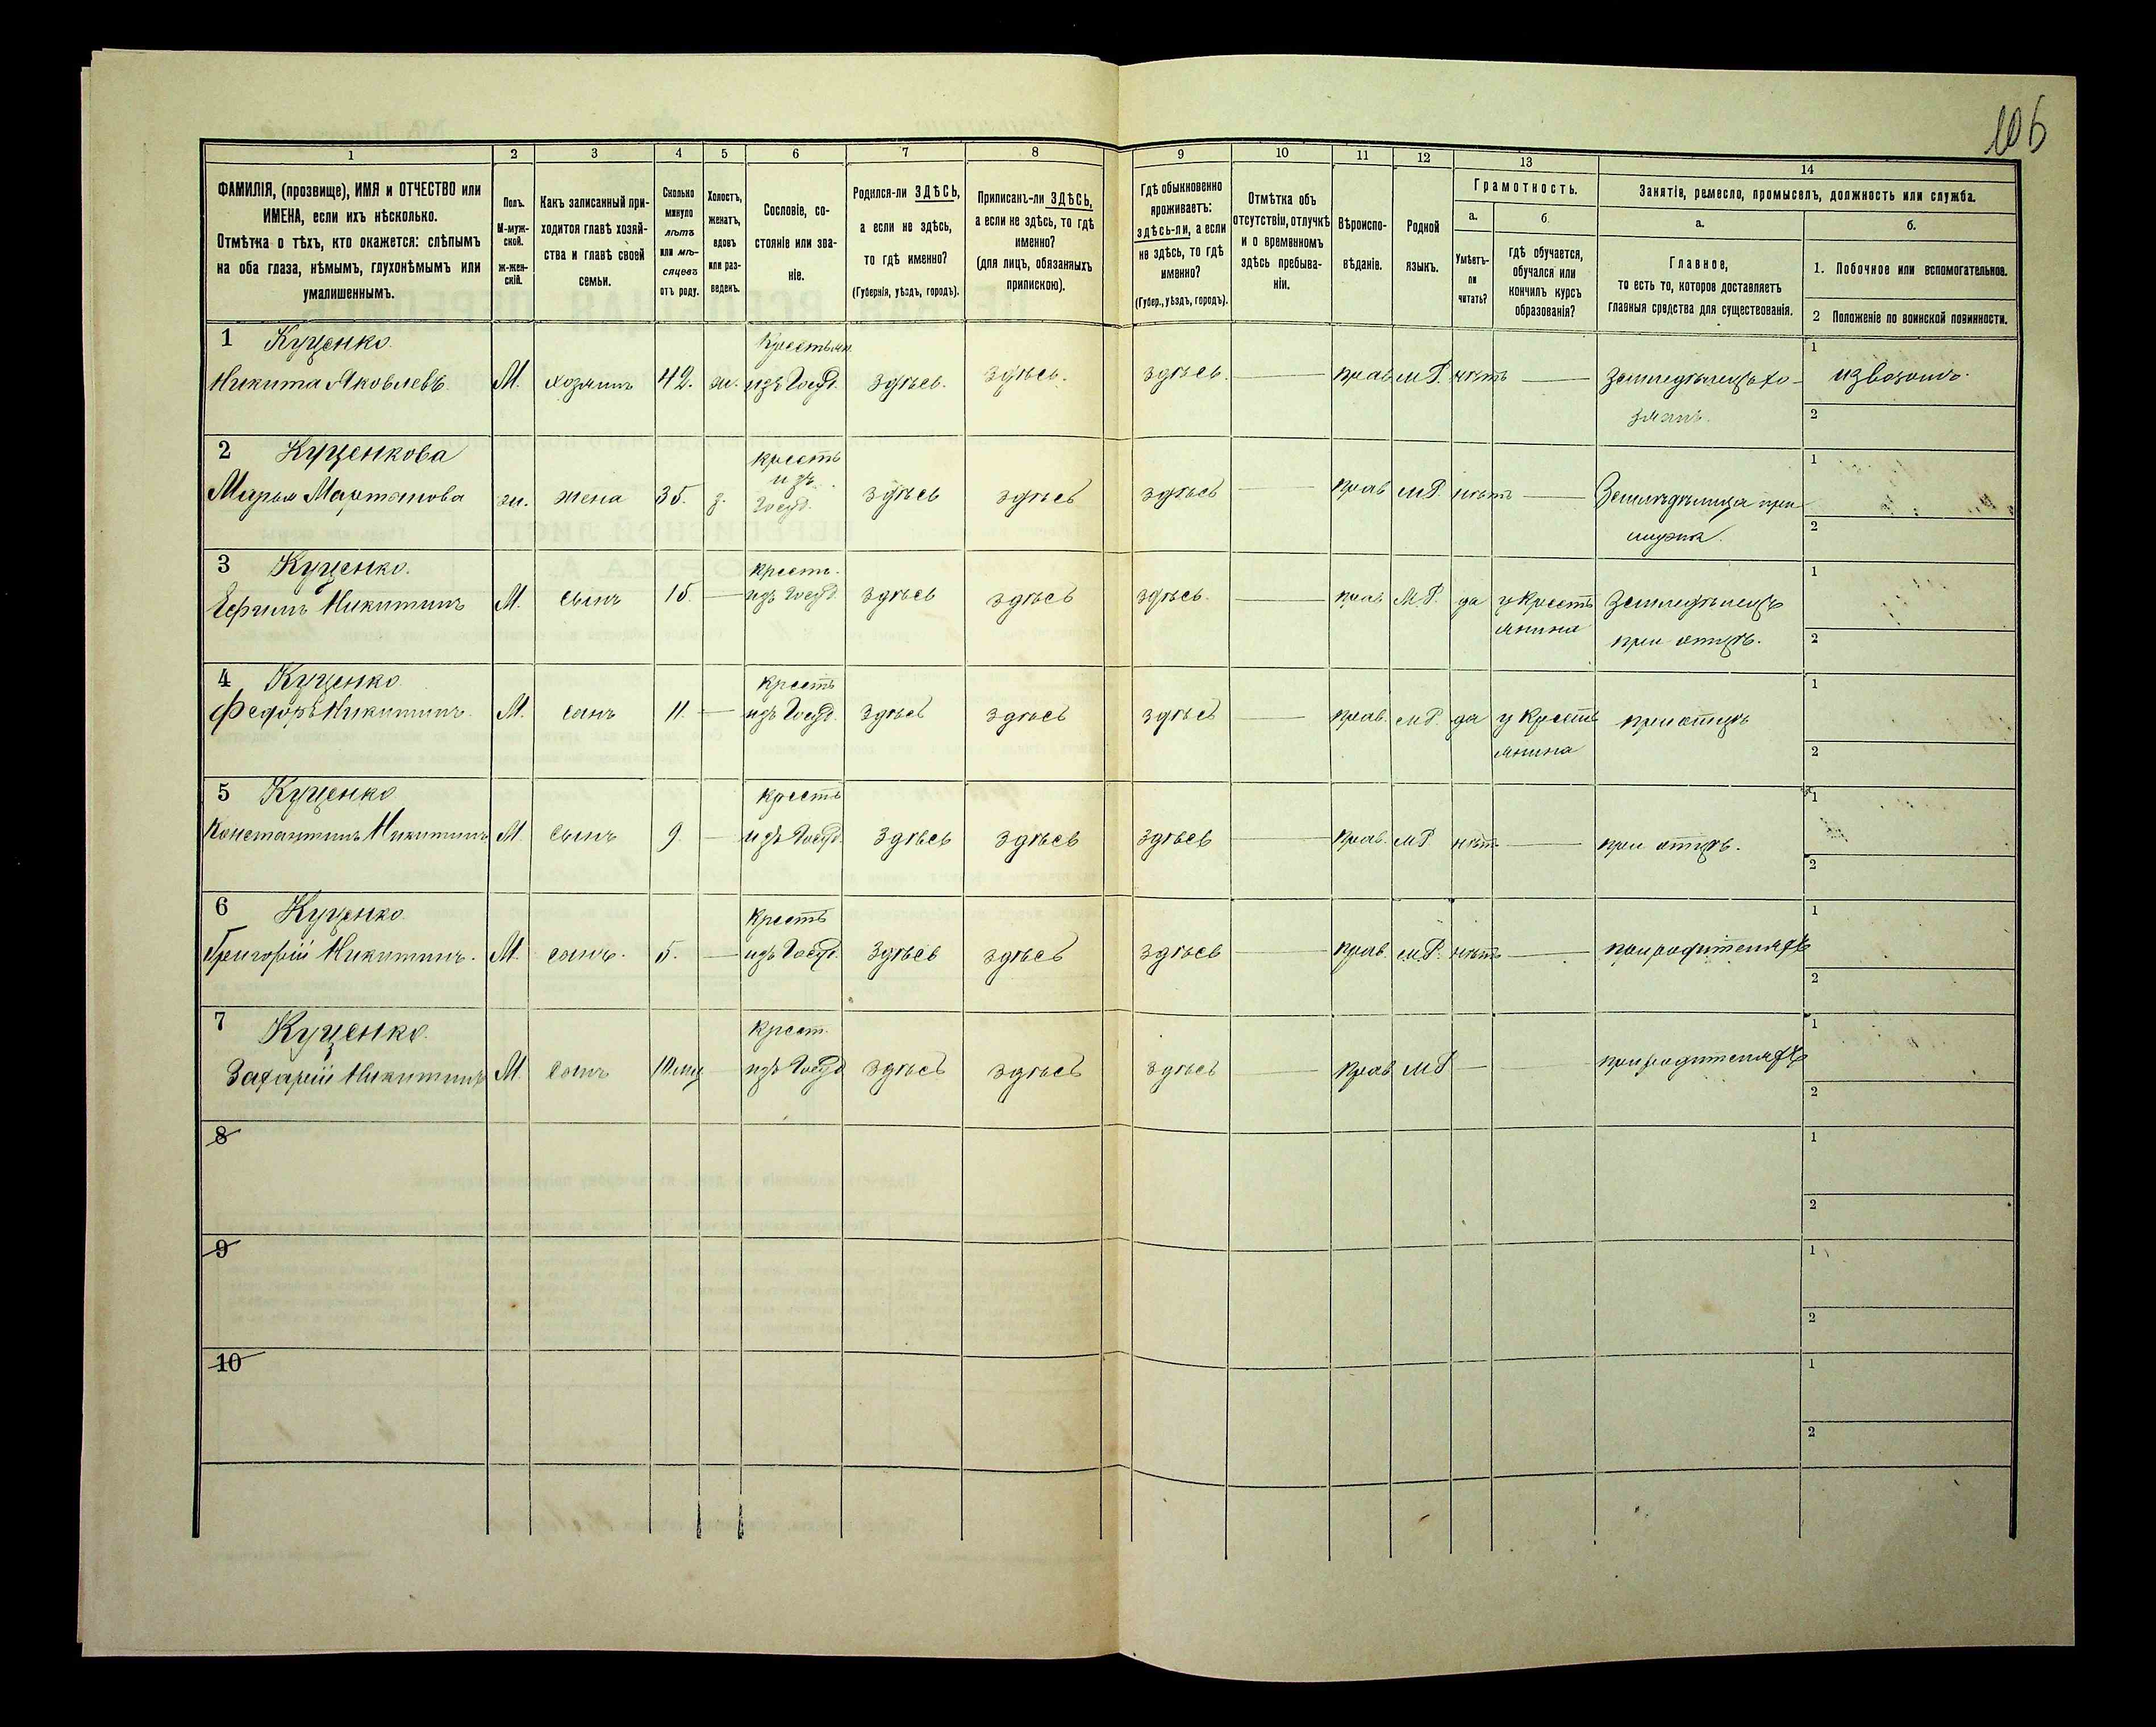 106
1 2 3 4 5 6 7 8 9 10 11 12 13 14
ФАМИЛІЯ, (прозвище), ИМЯ и ОТЧЕСТВО или
ИМЕНА, если ихъ нѣсколько.
Отмѣтка о тѣхъ, кто окажется: слѣпымъ
на оба глаза, нѣмымъ, глухонѣмымъ или
умалишеннымъ.
Полъ.
М-муж-
ской.
ж-жен-
скій.
Какъ записанный при-
ходится главѣ хозяй-
ства и главѣ своей
семьи.
Сколько
минуло
лѣтъ
или мѣ-
сяцевъ
отъ роду.
Холостъ,
женатъ,
вдовъ
или раз-
веденъ.
Сословіе, со-
стояніе или зва-
ніе.
Родился-ли ЗДѢСЬ,
а если не здѣсь,
то гдѣ именно?
(Губернія, уѣздъ, городъ).
Приписанъ-ли ЗДѢСЬ,
а если не здѣсь, то гдѣ
именно?
(для лицъ, обязанныхъ
припискою).
Гдѣ обыкновенно
проживаетъ:
здѣсь-ли, а если
не здѣсь, то гдѣ
именно?
(Губер., уѣздъ, городъ).
Отмѣтка объ
отсутствіи, отлучкѣ
и о временномъ
здѣсь пребыва-
ніи.
Вѣроиспо-
вѣданіе.
Родной
языкъ.
Грамотность.
а.
Умѣетъ-
ли
читать?
б.
гдѣ обучается,
обучался или
кончилъ курсъ
образованія?
Занятіе, ремесло, промыселъ, должность или служба.
а.
Главное,
то есть то, которое доставляетъ
главныя средства для существованія.
б.
1. Побочное или вспомогательное.
2 Положеніе по воинской повинности.
1 Куценко. Крестьян. 1
Никита Яковлевъ М. хозяинъ 42. ж. изъ Госуд. здѣсь. здѣсь. здѣсь. — прав. м.Р. нѣтъ — Земледѣлецъ хо- извозомъ.
зяинъ. 2
2 Куценкова крестъ 1
изъ
Марья Мартынова ж. жена 35. з. Госуд. здѣсь здѣсь здѣсь — прав м.Р. нѣтъ — Земледѣлица при
мужѣ. 2
3 Куценко. крестъ. 1
Ефимъ Никитинъ М. сынъ 15. — изъ Госуд. здѣсь здѣсь здѣсь. — прав. М.Р. да у Крестъ Земледѣлецъ
янина при отцѣ. 2
4 Куценко. крестъ 1
Федоръ Никитинъ. М. сынъ 11. — изъ Госуд. здѣсь здѣсь здѣсь — прав. м.Р. да у Крестъ при отцѣ
янина 2
5 Куценко крестъ 1
Константинъ Никитинъ М. сынъ 9. — изъ Госуд. здѣсь здѣсь здѣсь — прав. м.Р. нѣтъ — при отцѣ.
2
6 Куценко. Крестъ 1
Григорій Никитинъ. М. сынъ. 5. — изъ Госуд. здѣсь здѣсь здѣсь — прав. м.Р. нѣтъ — при родителяхъ
2
7 Куценко. крест. 1
Захарій Никитинъ М. сынъ 10 мц — изъ Госуд здѣсь здѣсь здѣсь — прав м.Р — — при родителяхъ
2
8 1
2
9 1
2
10 1
2